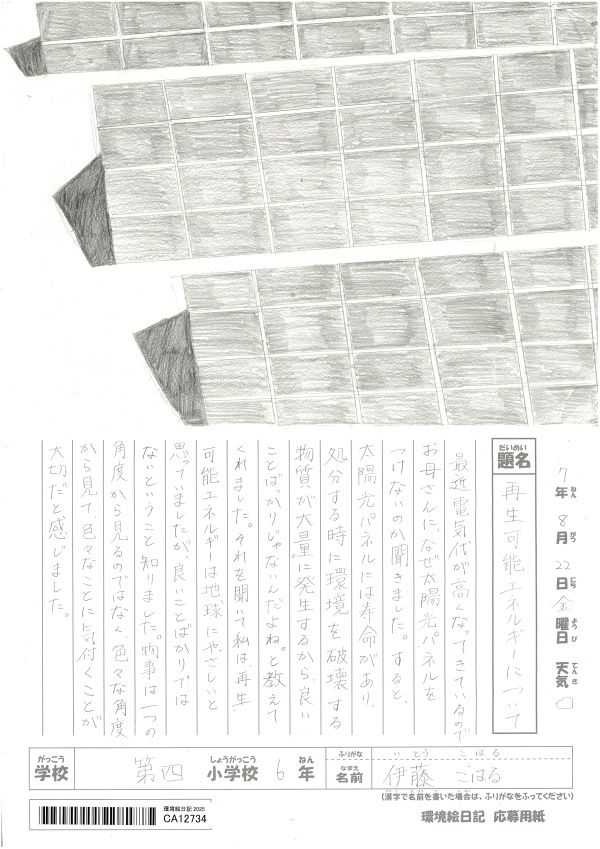 7年 8月 22日 金曜日 天気
ねん がつ にち ようび てんき
だいめい
題名 再生可能エネルギーについて
最近電気代が高くなってきているので
お母さんに、なぜ太陽光パネルを
つけないのか聞きました。すると、
太陽光パネルには寿命があり、
処分する時に環境を破壊する
物質が大量に発生するから、良い
ことばっかりじゃないんだよね。と教えて
くれました。それを聞いて私は、再生
可能エネルギーは地球にやさしいと
思っていましたが、良いことばかりでは
ないということ知りました。物事は一つの
角度から見るのではなく、色々な角度
から見て、色々なことに気付くことが
大切だと感じました。
がっこう しょうがっこう ねん ふりがな いとう こはる
学校 第四 小学校 6年 なまえ 名前 伊藤 こはる
(漢字で名前を書いた場合は、ふりがなをふってください)
環境絵日記 2025
CA12734
環境絵日記 応募用紙